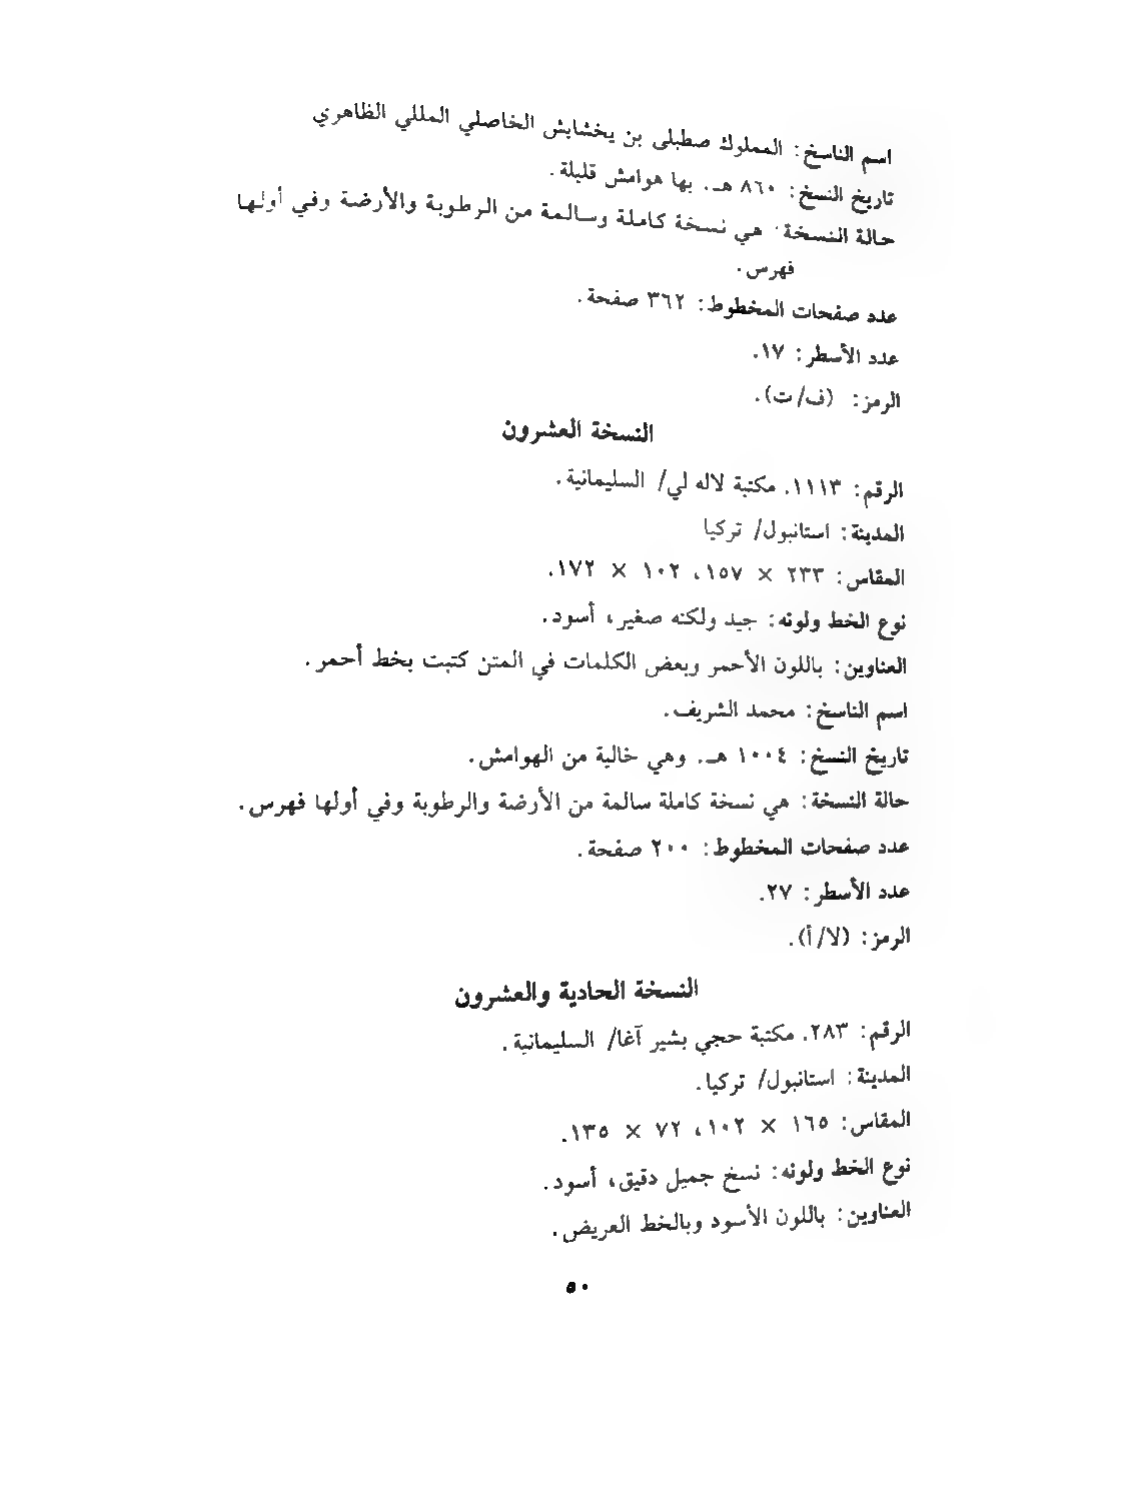 اسم الناسخ: المملوك صطبلى بن يخشايش الخاصلي المللي الظاهري
تاريخ النسخ: ٨٦٠ هـ. بها هوامش قليلة.
حالة النسخة: هي نسخة كاملة وسالمة من الرطوبة والأرضة وفي أولها
فهرس.
عدد صفحات المخطوط: ٣٦٢ صفحة.
عدد الأسطر: ١٧.
الرمز: (ف/ ت).
النسخة العشرون
الرقم: ١١١٣. مكتبة لاله لي/ السليمانية.
المدينة: استانبول/ تركيا
المقاس: ٢٣٣ × ١٥٧، ١٠٢ × ١٧٢.
نوع الخط ولونه: جيد ولكنه صغير، أسود.
العناوين: باللون الأحمر وبعض الكلمات في المتن كتبت بخط أحمر.
اسم الناسخ: محمد الشريف.
تاريخ النسخ: ١٠٠٤ هـ. وهي خالية من الهوامش.
حالة النسخة: هي نسخة كاملة سالمة من الأرضة والرطوبة وفي أولها فهرس.
عدد صفحات المخطوط: ٢٠٠ صفحة.
عدد الأسطر: ٢٧.
الرمز: (لا/ أ).
النسخة الحادية والعشرون
الرقم: ٢٨٣. مكتبة حجي بشير آغا/ السليمانية.
المدينة: استانبول/ تركيا.
المقاس: ١٦٥ × ١٠٢، ٧٢ × ١٣٥.
نوع الخط ولونه: نسخ جميل دقيق، أسود.
العناوين: باللون الأسود وبالخط العريض.
٥٠